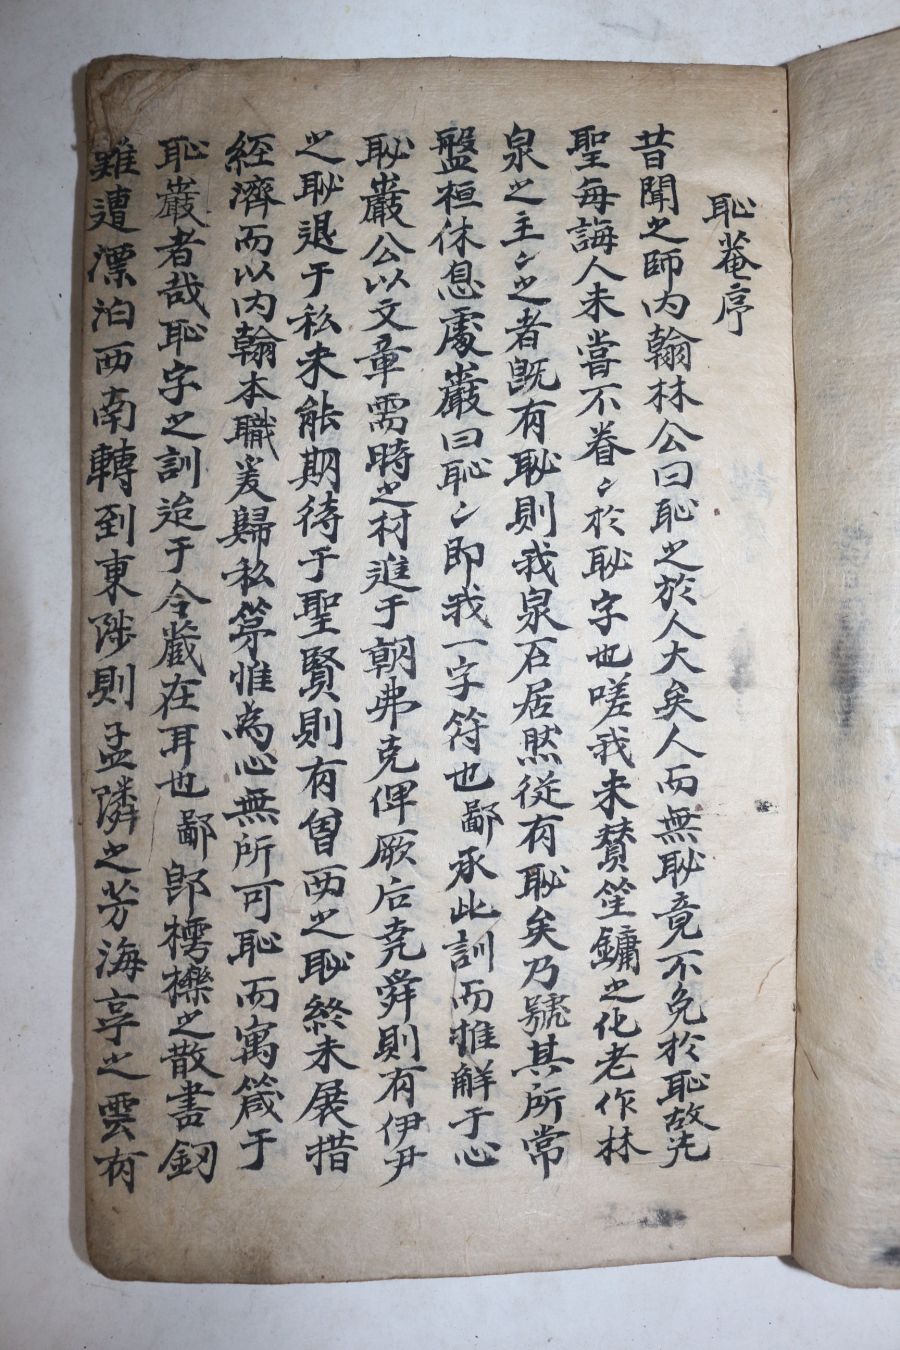 恥菴序
昔聞之師內翰林公曰恥之於人大矣人而無恥竟不免於恥故先
聖每誨人未嘗不眷〻於恥字也嗟我未贊笙鏞之化老作林
泉之主〻之者旣有恥則我泉石居然從有恥矣乃號其所常
盤桓休息處巖曰恥〻卽我一字符也鄙承此訓而推解于心
恥巖公以文章需時之材進于朝弗克俾厥后堯舜則有伊尹
之恥退于私未能期待于聖賢則有曾西之恥終未展措
經濟而以內翰本職爰歸私第惟爲心無所可恥而寓箴于
恥巖者哉恥字之訓迨于今藏在耳也鄙卽樗櫟之散書釖
雖遭漂泊西南轉到東陟則孟隣之芳海亭之雲有